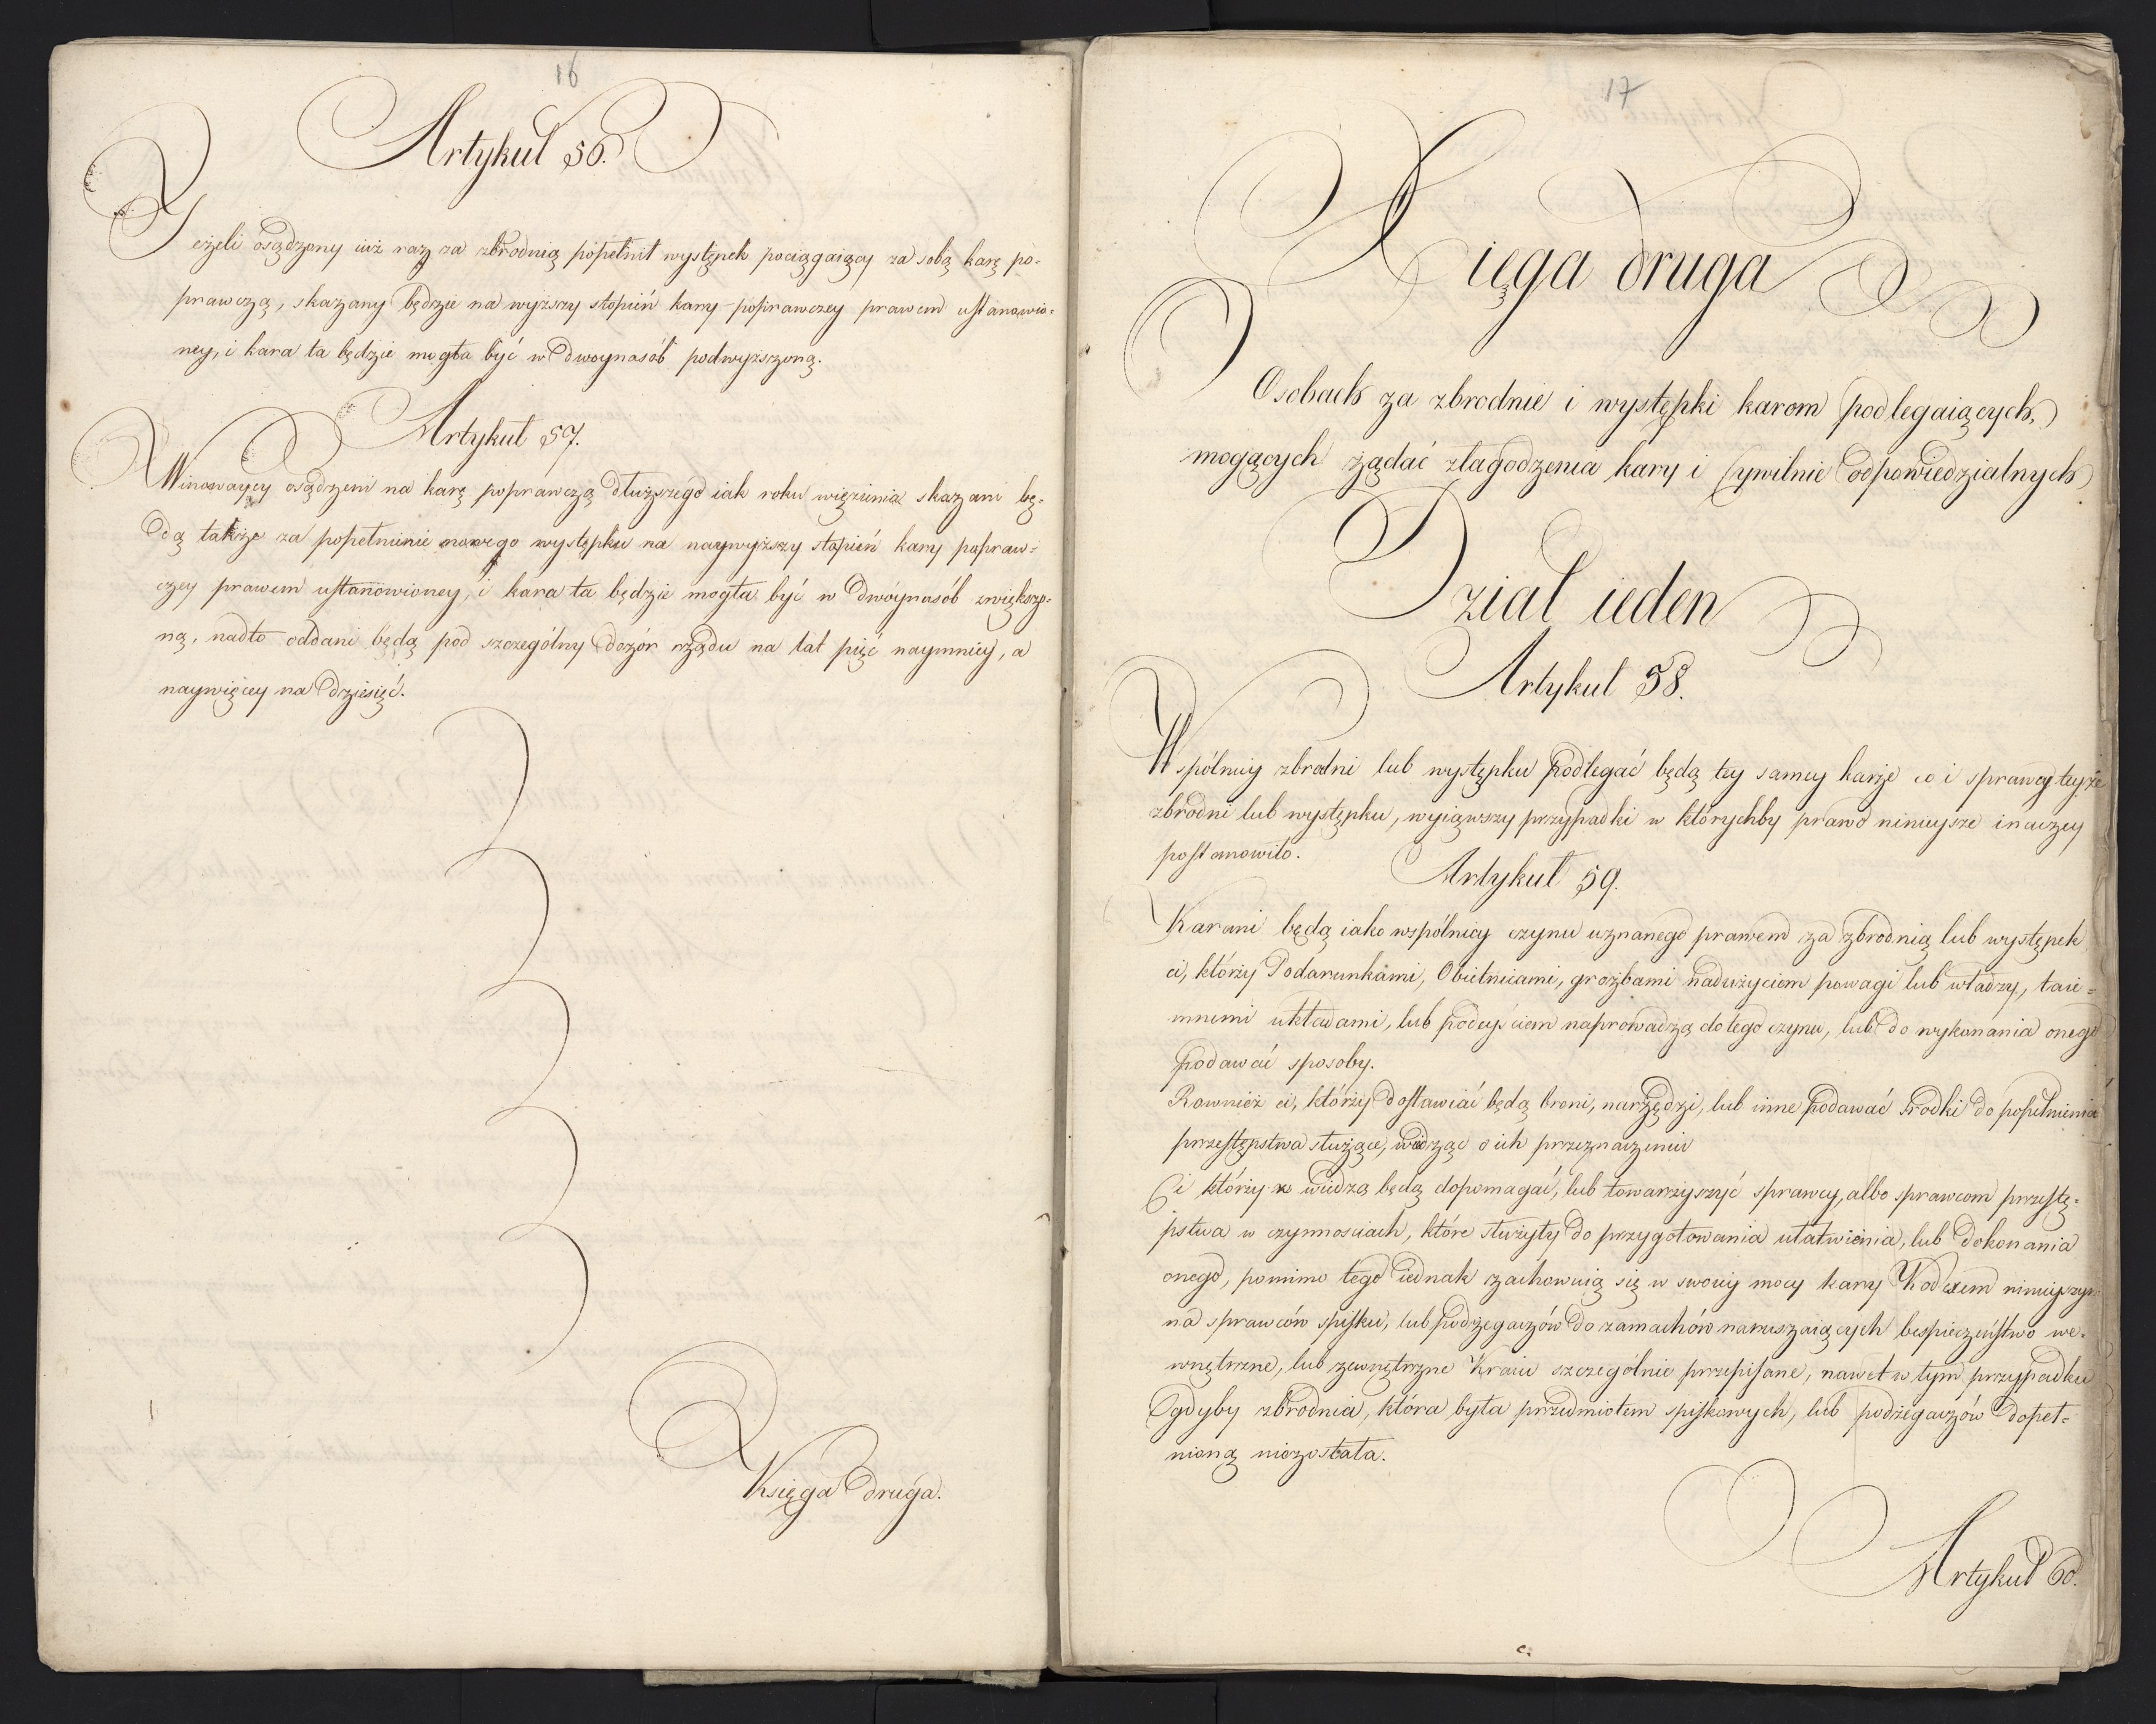 16
Artykuł 56.
Jeżeli osądzony iuż raz za zbrodnią popełnił występek pociągaiący za sobą karę po-
prawczą, skazany będzie na wyższy stopień kary poprawczey prawem ustanowio-
ney, i kara ta będzie mogła być w dwoynasób podwyższoną.
Artykuł 57.
Winowaycy osądzeni na karę poprawczą dłuższego iak roku więzienia skazani bę-
dą także za popełnienie nowego występku na naywyższy stopień kary popraw-
czey prawem ustanowioney, i kara ta będzie mogła być w dwóynasób zwiększo-
ną, nadto oddani będą pod szczególny dozór rządu na lat pięć naymniey, a
naywięcey na dziesięć.
Księga druga.
17
Xięga druga
O Osobach za zbrodnie i występki karom podlegaiących,
mogących żądać złagodzenia kary i Cywilnie odpowiedzialnych
Dział ieden
Artykuł 58.
Wspólnicy zbrodni lub występku podlegać będą tey samey karze co i sprawcy teyże
zbrodni lub występku, wyiąwszy przypadki w którychby prawo ninieysze inaczey
postanowiło.
Artykuł 59.
Karani będą iako wspólnicy czynu uznanego prawem za zbrodnią lub występek
ci, którzy Podarunkami, Obietnicami, groźbami nadużyciem powagi lub władzy, taie-
mnemi układami, lub podeyściem naprowadzą do tego czynu, lub do wykonania onego
podawać sposoby.
Rownież ci, którzy dostawiać będą broni, narzędzi, lub inne podawać srodki do popełnienia
przestępstwa służące, wiedząc o ich przeznaczeniu
Ci którzy z wiedzą będą dopomagać, lub towarzyszyć sprawcy, albo sprawcom przestę-
pstwa w czynnosciach, które służyły do przygotowania ułatwienia, lub dokonania
onego, pomimo tego iednak zachowuią się w swoiey mocy kary Kodexem ninieyszym
na sprawców spisku, lub podżegaczów do zamachów naruszaiących bespieczeństwo we-
wnętrzne, lub zewnętrzne Kraiu szczególnie przepisane, nawet w tym przypadku
gdyby zbrodnia, która była przedmiotem spiskowych, lub podżegaczów dopeł-
nioną niezostała.
Artykuł 60.